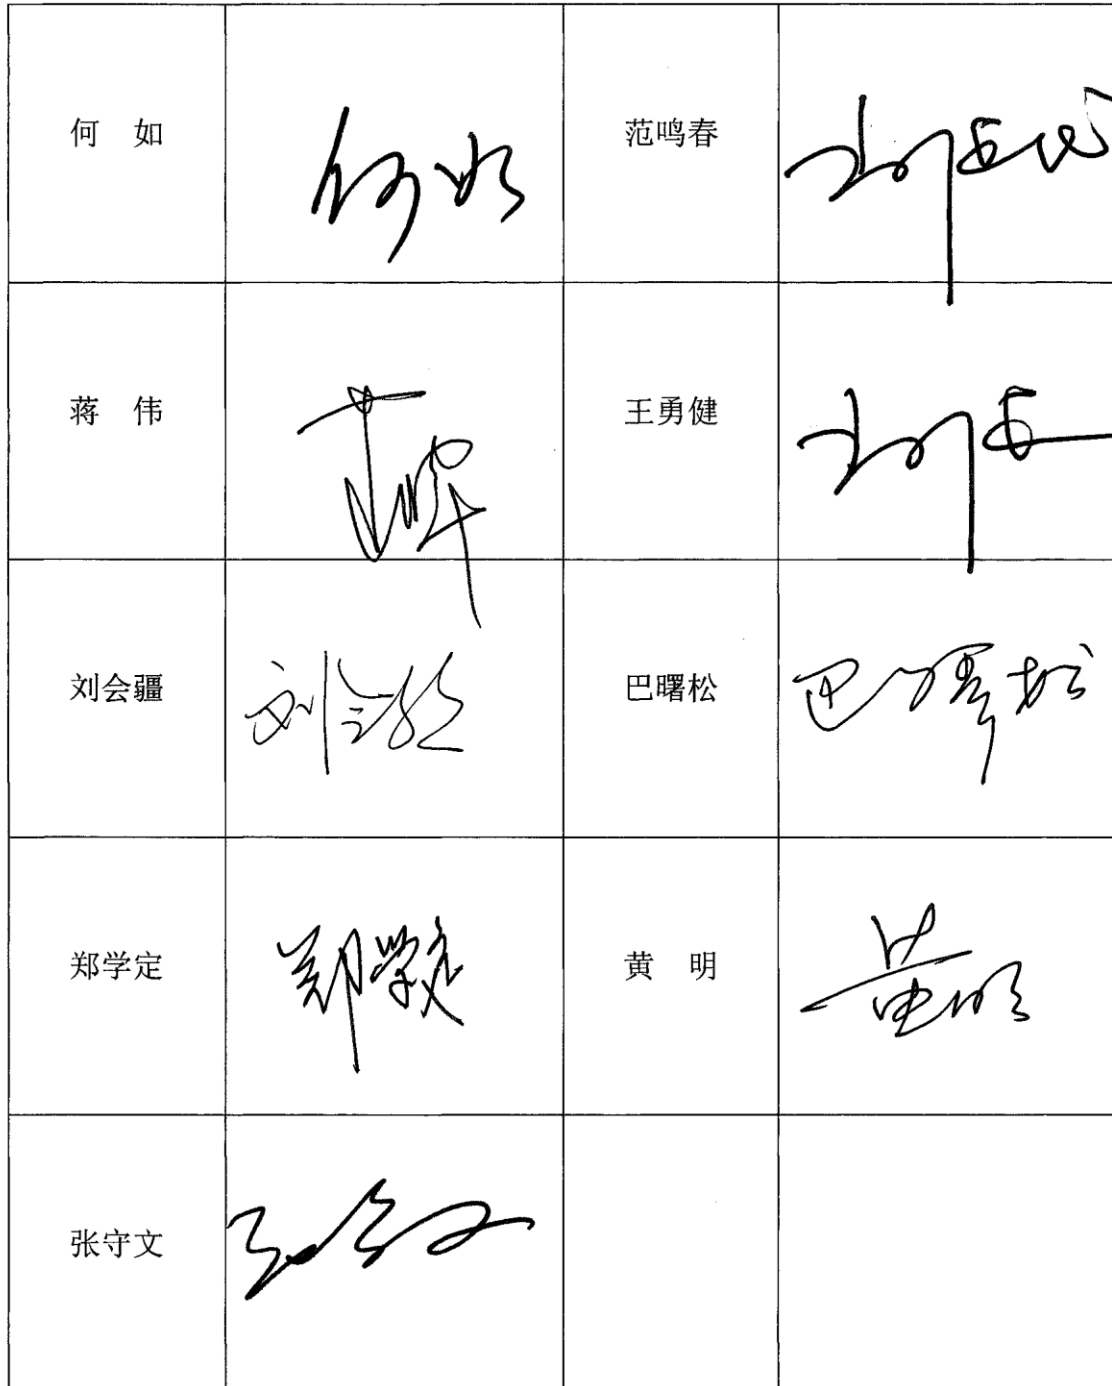 何 如 何如 范鸣春
蒋 伟 王勇健
刘会疆 刘会疆 巴曙松 巴曙松
郑学定 郑学定 黄 明 黄明
张守文 张守文